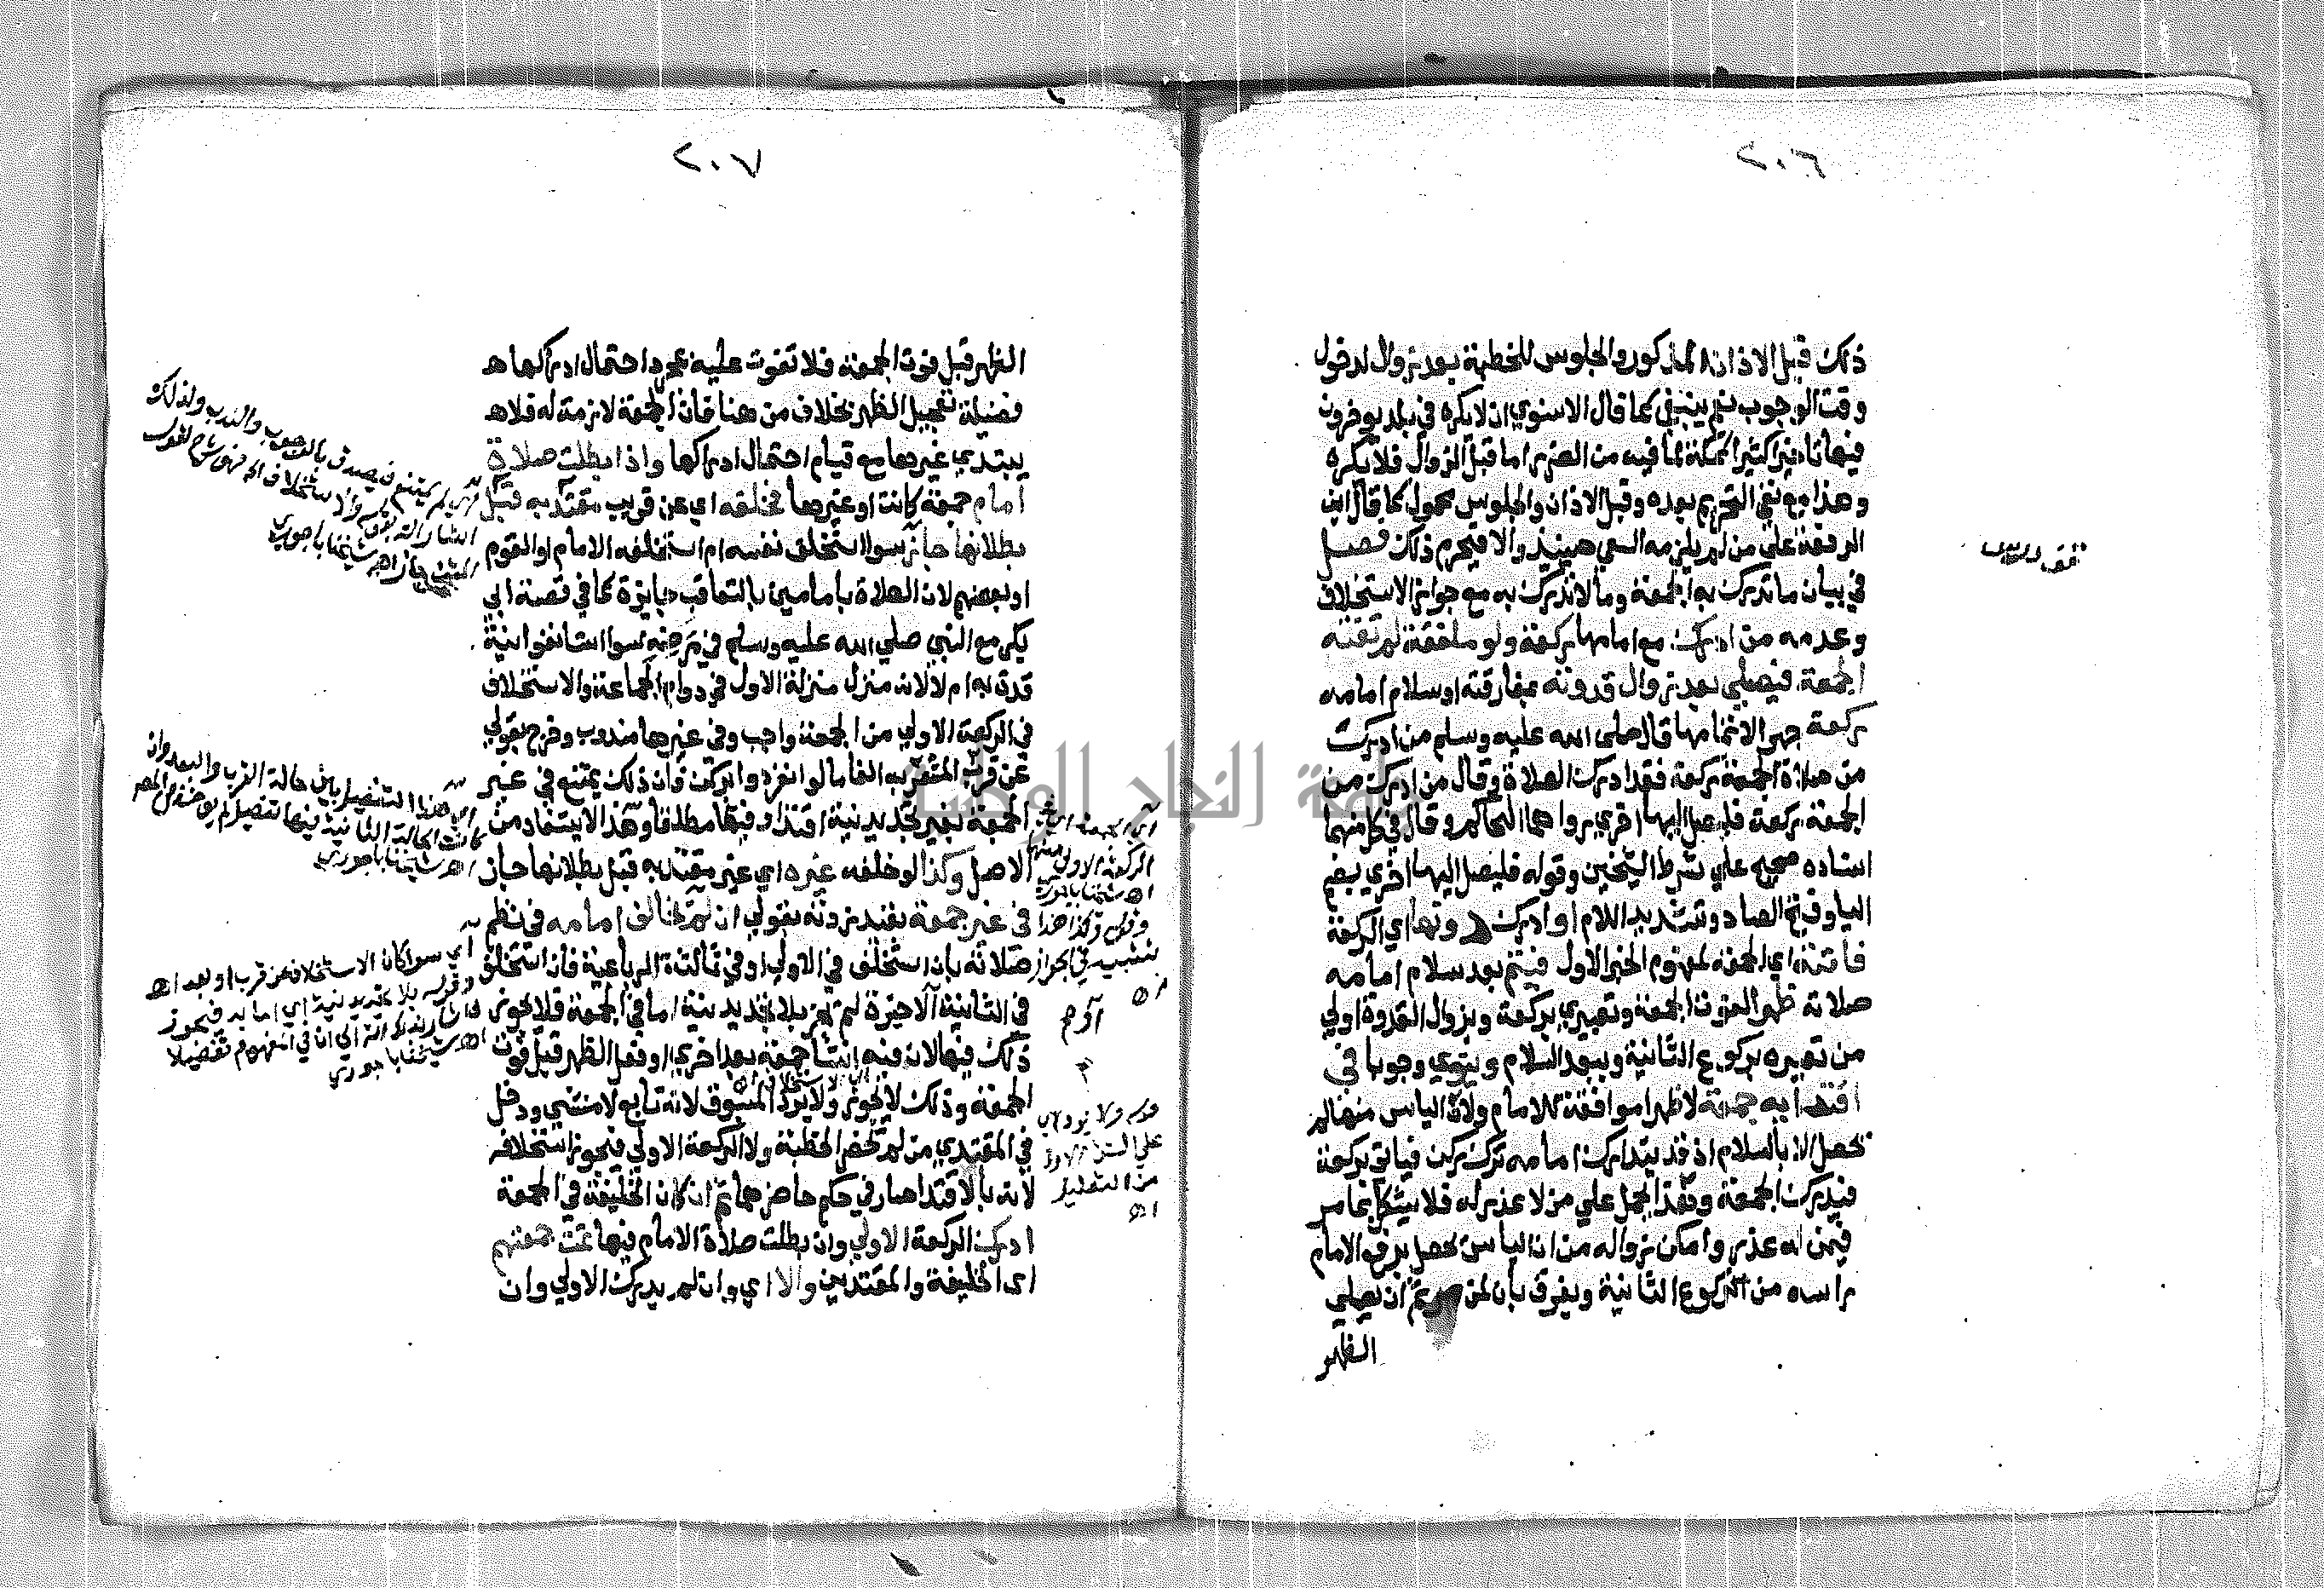 ٢٠٦
ذلك قبل الاذان المذكور والجلوس للخطبة بعد زوال لدخول
وقت الوجوب نعم ينبغي كما قال الاسنوي ان لا يكره في بلد يوخرون
فيها تاخيرا كثيرا كمكة لما فيه من الضرر اما قبل الزوال فلا يكره
وهذا مع نفي التحريم بعده وقبل الاذان والجلوس محمول كما قال ابن
الرفعة علي من لم يلزمه السعي حينيذ والا فيحرم ذلك فصل
في بيان ما تدرك به الجمعة وما لا تدرك به مع جواز الاستخلاف
وعدمه من ادرك مع امامها ركعة ولو ملفقة لم تفته
الجمعة فيصلي بعد زوال قدوته بمفارقته او سلام امامه
ركعة جهرا لاتمامها قال صلى الله عليه وسلم من ادرك
من صلاة الجمعة ركعة فقد ادرك الصلاة وقال من ادرك من
الجمعة ركعة فليصل اليها اخري رواهما الحاكم وقال في كل منهما
اسناده صحيح علي شرط الشيخين وقوله فليصل اليها اخري بضم
اليا وفتح الصاد وتشديد اللام او ادرك دونها اي الركعة
فاتته اي الجمعة لمفهوم الخبر الاول فيتم بعد سلام امامه
صلاته ظهرا لفوت الجمعة وتعبيري بركعة وبزوال القدوة اولي
من تعبيره بركوع الثانية وببعد السلام وينوي وجوبا في
اقتدايه جمعة لا ظهرا موافقة للامام ولان الياس منها لم
يحصل الا بالسلام اذ قد يتدارك امامه ترك ركن فياتي بركعة
فيدرك الجمعة وهذا محمل علي من لا عذر له فلا يشكل بما مر
فيمن له عذر وامكن زواله من ان الياس يحصل برفع الامام
راسه من الركوع الثانية ويفرق بان لمن ثم ان يصلي
الظهر
٢٠٧
الظهر قبل فوت الجمعة فلا تفوت عليه بمجرد احتمال ادراكها
فضيلة تعجيل الظهر بخلاف من هنا فان الجمعة لازمة له فلا
يبتدي غيرها مع قيام احتمال ادراكها واذا بطلت صلاة
امام جمعة كانت او غيرها فخلفه اي عن قريب مقتد به قبل
بطلانها جاز سوا استخلف نفسه ام استخلفه الامام او القوم
او بعضهم لان الصلاة بامامين بالتعاقب جايزة كما في قصة ابي
بكر مع النبي صلي الله عليه وسلم في مرضه سوا استانفوا نية
قدوة به ام لا لانه منزل منزلة الاول في دوام الجماعة والاستخلاف
في الركعة الاولي من الجمعة واجب وفي غيرها مندوب وخرج بقولي
عن قرب المشعر به الفا ما لو انفردوا بركن فان ذلك يمتنع في غير
الجمعة بغير تجديد نية اقتدا وفيها مطلقا وهذا لا يستفاد من
الاصل وكذا لو خلفه غيره اي غير مقتد به قبل بطلانها جاز
في غير جمعة بقيد زدته بقولي ان لم يخالف امامه في نظم
صلاته بان استخلف في الاولي او في ثالثة الرباعية فان استخلف
في الثانية او الاخيرة لم يجز بلا تجديد نية اما في الجمعة فلا يجوز
ذلك فيها لان فيه انشا جمعة بعد اخري او فعل الظهر قبل فوت
الجمعة وذلك لا يجوز ولا يرد المسبوق لانه تابع لا منشي ودخل
في المقتدي من لم يحضر الخطبة ولا الركعة الاولي فيجوز استخلافه
لانه بالاقتدا صار في حكم حاضرهما ثم ان كان الخليفة في الجمعة
ادرك الركعة الاولي وان بطلت صلاة الامام فيها تمت جمعتهم
اي الخليفة والمقتدين والا اي وان لم يدرك الاولي وان
يصدق بالوجوب والندب ولذلك
اشار الشارح بقوله
اهـ شيخنا باجوري
هذا التفصيل بين حالة القرب والبعد وان
كانت الحالة الثانية فيها تفصيل
اهـ شيخنا باجوري
اي سوا كان الاستخلاف عن قرب او بعد اهـ
وقوله بلا تجديد نية اي اما به فيجوز
الى ان في المفهوم تفصيلا
اهـ شيخنا باجوري
الركعة الاولى منها
اهـ شيخنا باجوري
وقوله وكذا هذا
تشبيه في الجواز
اهـ
قوله ولا يرد اي
من التعليل
اهـ
جامعة النجاح الوطنية